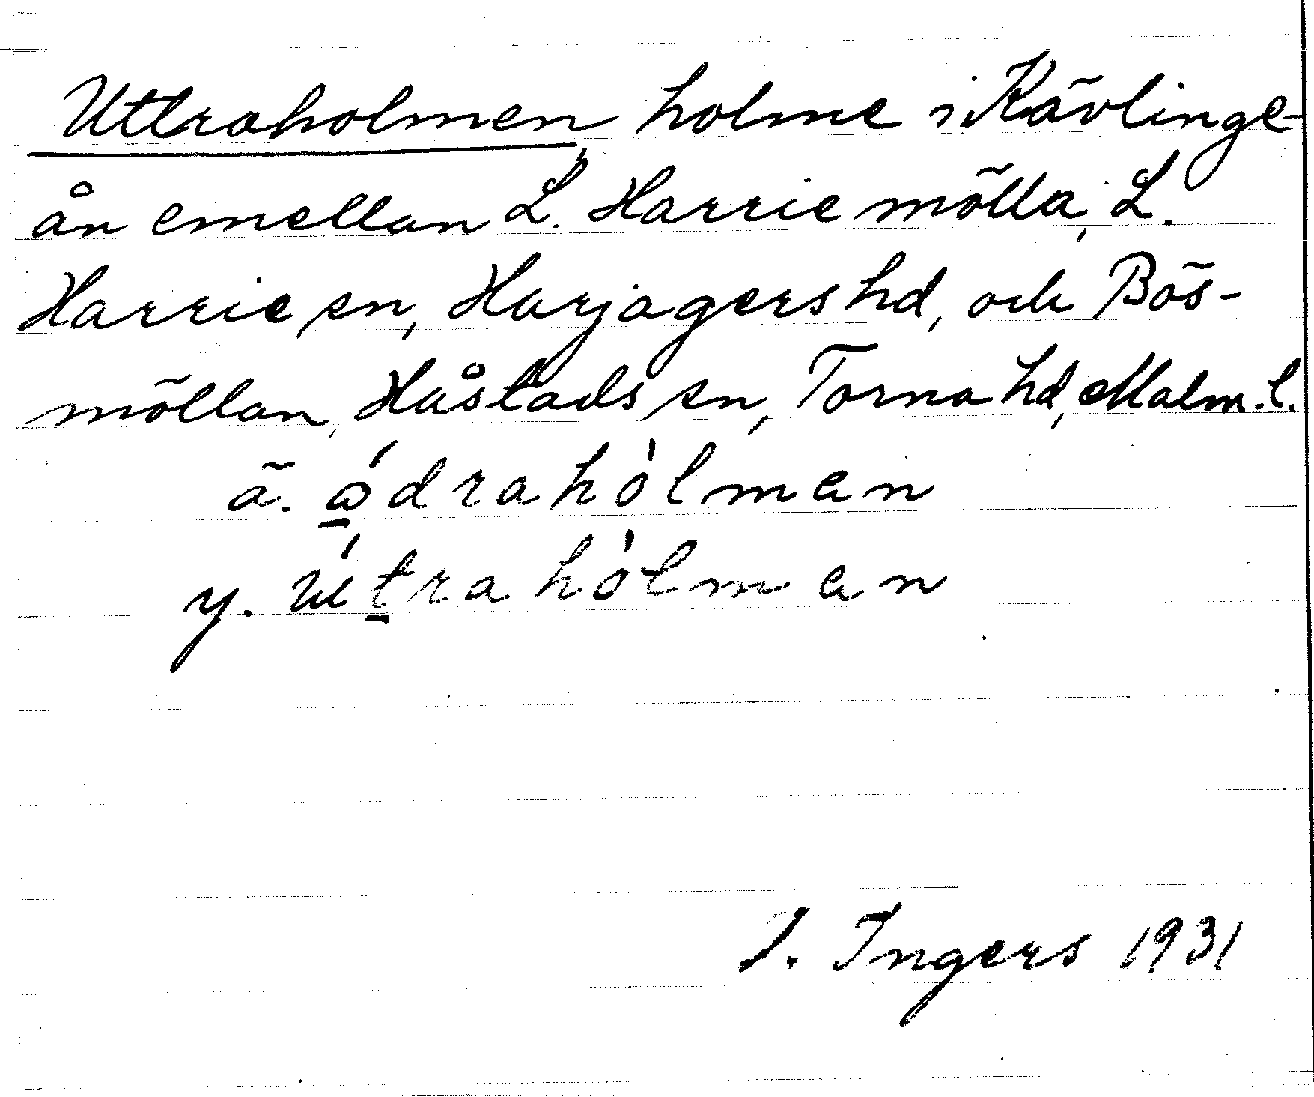 Uttraholmen, holme i Kävlinge-
ån emellan L. Harrie mölla, L.
Harrie sn, Harjagers hd, och Bös-
möllan, Håstads sn, Torna hd, Malm. l.
ä. ådrahòlman
y. útrahòlman
I. Ingers 1931